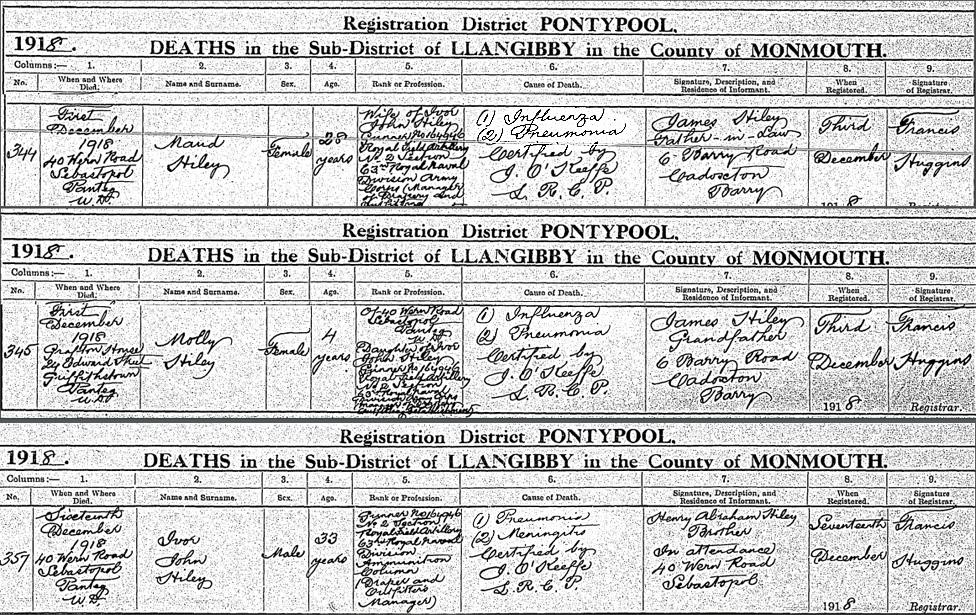 Registration District PONTYPOOL.
1918. DEATHS in the Sub-District of LLANGIBBY in the County of MONMOUTH.
Columns:— 1. 2. 3. 4. 5. 6. 7. 8. 9.
No. When and Where Died. Name and Surname. Sex. Age. Rank or Profession. Cause of Death. Signature, Description, and Residence of Informant. When Registered. Signature of Registrar.
344
First
December
1918
40 Wern Road
Sebastopol
Panteg
U.D.
Maud
Stiley
Female
28
years
Wife of Ivor
John Stiley
Gunner No 164946
Royal Field Artillery
No 2 Section
63rd Royal Naval
Division Army
Corps (Manager
of Drapery and
(1) Influenza
(2) Pneumonia
Certified by
J. O'Keeffe
L. R. C. P.
James Stiley
Father-in-Law
6 Barry Road
Cadoxton
Barry
Third
December
1918
Francis
Huggins
Registrar.
Registration District PONTYPOOL.
1918. DEATHS in the Sub-District of LLANGIBBY in the County of MONMOUTH.
Columns:— 1. 2. 3. 4. 5. 6. 7. 8. 9.
No. When and Where Died. Name and Surname. Sex. Age. Rank or Profession. Cause of Death. Signature, Description, and Residence of Informant. When Registered. Signature of Registrar.
345
First
December
1918
Grafton House
29 Edward Street
Griffithstown
Panteg
U.D.
Molly
Stiley
Female
4
years
Of 40 Wern Road
Sebastopol
Panteg
U.D.
Daughter of Ivor
John Stiley
Gunner No 164946
Royal Field Artillery
No 2 Section
63rd Royal Naval
(1) Influenza
(2) Pneumonia
Certified by
J. O'Keeffe
L. R. C. P.
James Stiley
Grandfather
6 Barry Road
Cadoxton
Barry
Third
December
1918
Francis
Huggins
Registrar.
Registration District PONTYPOOL.
1918. DEATHS in the Sub-District of LLANGIBBY in the County of MONMOUTH.
Columns:— 1. 2. 3. 4. 5. 6. 7. 8. 9.
No. When and Where Died. Name and Surname. Sex. Age. Rank or Profession. Cause of Death. Signature, Description, and Residence of Informant. When Registered. Signature of Registrar.
357
Sixteenth
December
1918
40 Wern Road
Sebastopol
Panteg
U.D.
Ivor
John
Stiley
Male
33
years
Gunner No 164946
No 2 Section
Royal Field Artillery
63rd Royal Naval
Division
Ammunition
Column
(Draper and
Outfitters
Manager)
(1) Pneumonia
(2) Meningitis
Certified by
J. O'Keeffe
L. R. C. P.
Henry Abraham Stiley
Brother
In attendance
40 Wern Road
Sebastopol
Seventeenth
December
1918
Francis
Huggins
Registrar.